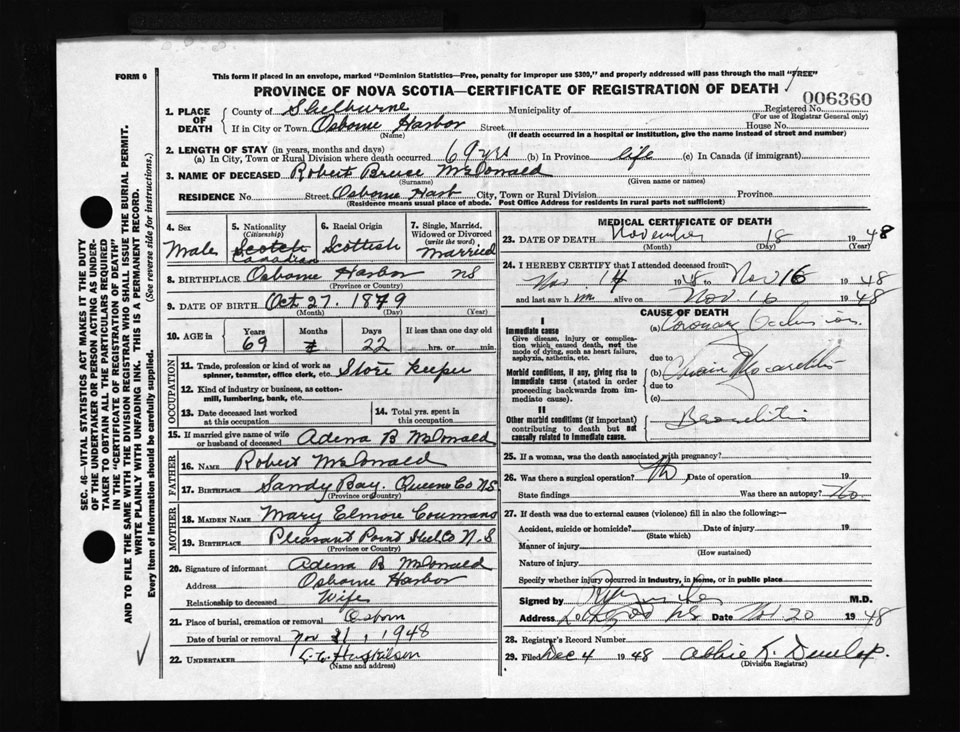 FORM 6
This form if placed in an envelope, marked "Dominion Statistics—Free, penalty for improper use $300," and properly addressed will pass through the mail "FREE"
PROVINCE OF NOVA SCOTIA—CERTIFICATE OF REGISTRATION OF DEATH
006360
1. PLACE OF DEATH County of Shelburne Municipality of Registered No.
(For use of Registrar General only)
If in City or Town Osborne Harbor Street House No.
(Name) (If death occurred in a hospital or institution, give the name instead of street and number)
2. LENGTH OF STAY (in years, months and days)
(a) In City, Town or Rural Division where death occurred 69 yrs (b) In Province life (c) In Canada (if immigrant)
3. NAME OF DECEASED Robert Bruce McDonald
(Surname) (Given name or names)
RESIDENCE No. Street Osborne Harb City, Town or Rural Division Province
(Residence means usual place of abode. Post Office Address for residents in rural parts not sufficient)
4. Sex
Male
5. Nationality
(Citizenship)
Scotch
Canadian
6. Racial Origin
Scottish
7. Single, Married, Widowed or Divorced
(write the word)
Married
8. BIRTHPLACE Osborne Harbor NS
(Province or Country)
9. DATE OF BIRTH Oct 27. 1879
(Month) (Day) (Year)
10. AGE in
Years Months Days If less than one day old
69 22 hrs. or min.
OCCUPATION
11. Trade, profession or kind of work as spinner, teamster, office clerk, etc. Store Keeper
12. Kind of industry or business, as cotton-mill, lumbering, bank, etc.
13. Date deceased last worked at this occupation
14. Total yrs. spent in this occupation
15. If married give name of wife or husband of deceased Adena B McDonald
FATHER
16. NAME Robert McDonald
17. BIRTHPLACE Sandy Bay. Queens Co NS
(Province or Country)
MOTHER
18. MAIDEN NAME Mary Elmore Coumans
19. BIRTHPLACE Pleasant Point Shel Co N.S
(Province or Country)
20. Signature of informant Adena B McDonald
Address Osborne Harbor
Relationship to deceased Wife
21. Place of burial, cremation or removal Osborn
Date of burial or removal Nov 21, 1948
22. UNDERTAKER
(Name and address)
MEDICAL CERTIFICATE OF DEATH
23. DATE OF DEATH November 18 1948
(Month) (Day) (Year)
24. I HEREBY CERTIFY that I attended deceased from:
Nov. 14 1948 to Nov 16 1948
and last saw him alive on Nov. 16 1948
CAUSE OF DEATH
I
Immediate cause
Give disease, injury or complication which caused death, not the mode of dying, such as heart failure, asphyxia, asthenia, etc.
(a) Coronary Occlusion
due to
Morbid conditions, if any, giving rise to immediate cause (stated in order proceeding backwards from immediate cause).
(b)
due to
(c)
II
Other morbid conditions (if important) contributing to death but not causally related to immediate cause.
25. If a woman, was the death associated with pregnancy?
26. Was there a surgical operation? No Date of operation 19
State findings Was there an autopsy? No.
27. If death was due to external causes (violence) fill in also the following:—
Accident, suicide or homicide? Date of injury 19
(State which)
Manner of injury
(How sustained)
Nature of injury
Specify whether injury occurred in industry, in home, or in public place
Signed by M.D.
Address NS Date Nov. 20 1948
28. Registrar's Record Number
29. Filed Dec 4 1948 Abbie K. Dunlop.
(Division Registrar)
SEC. 46—VITAL STATISTICS ACT MAKES IT THE DUTY OF THE UNDERTAKER OR PERSON ACTING AS UNDERTAKER TO OBTAIN ALL THE PARTICULARS REQUIRED IN THE "CERTIFICATE OF REGISTRATION OF DEATH"
AND TO FILE THE SAME WITH THE DIVISION REGISTRAR WHO SHALL ISSUE THE BURIAL PERMIT.
WRITE PLAINLY WITH UNFADING INK. THIS IS A PERMANENT RECORD.
Every item of information should be carefully supplied. (See reverse side for instructions.)